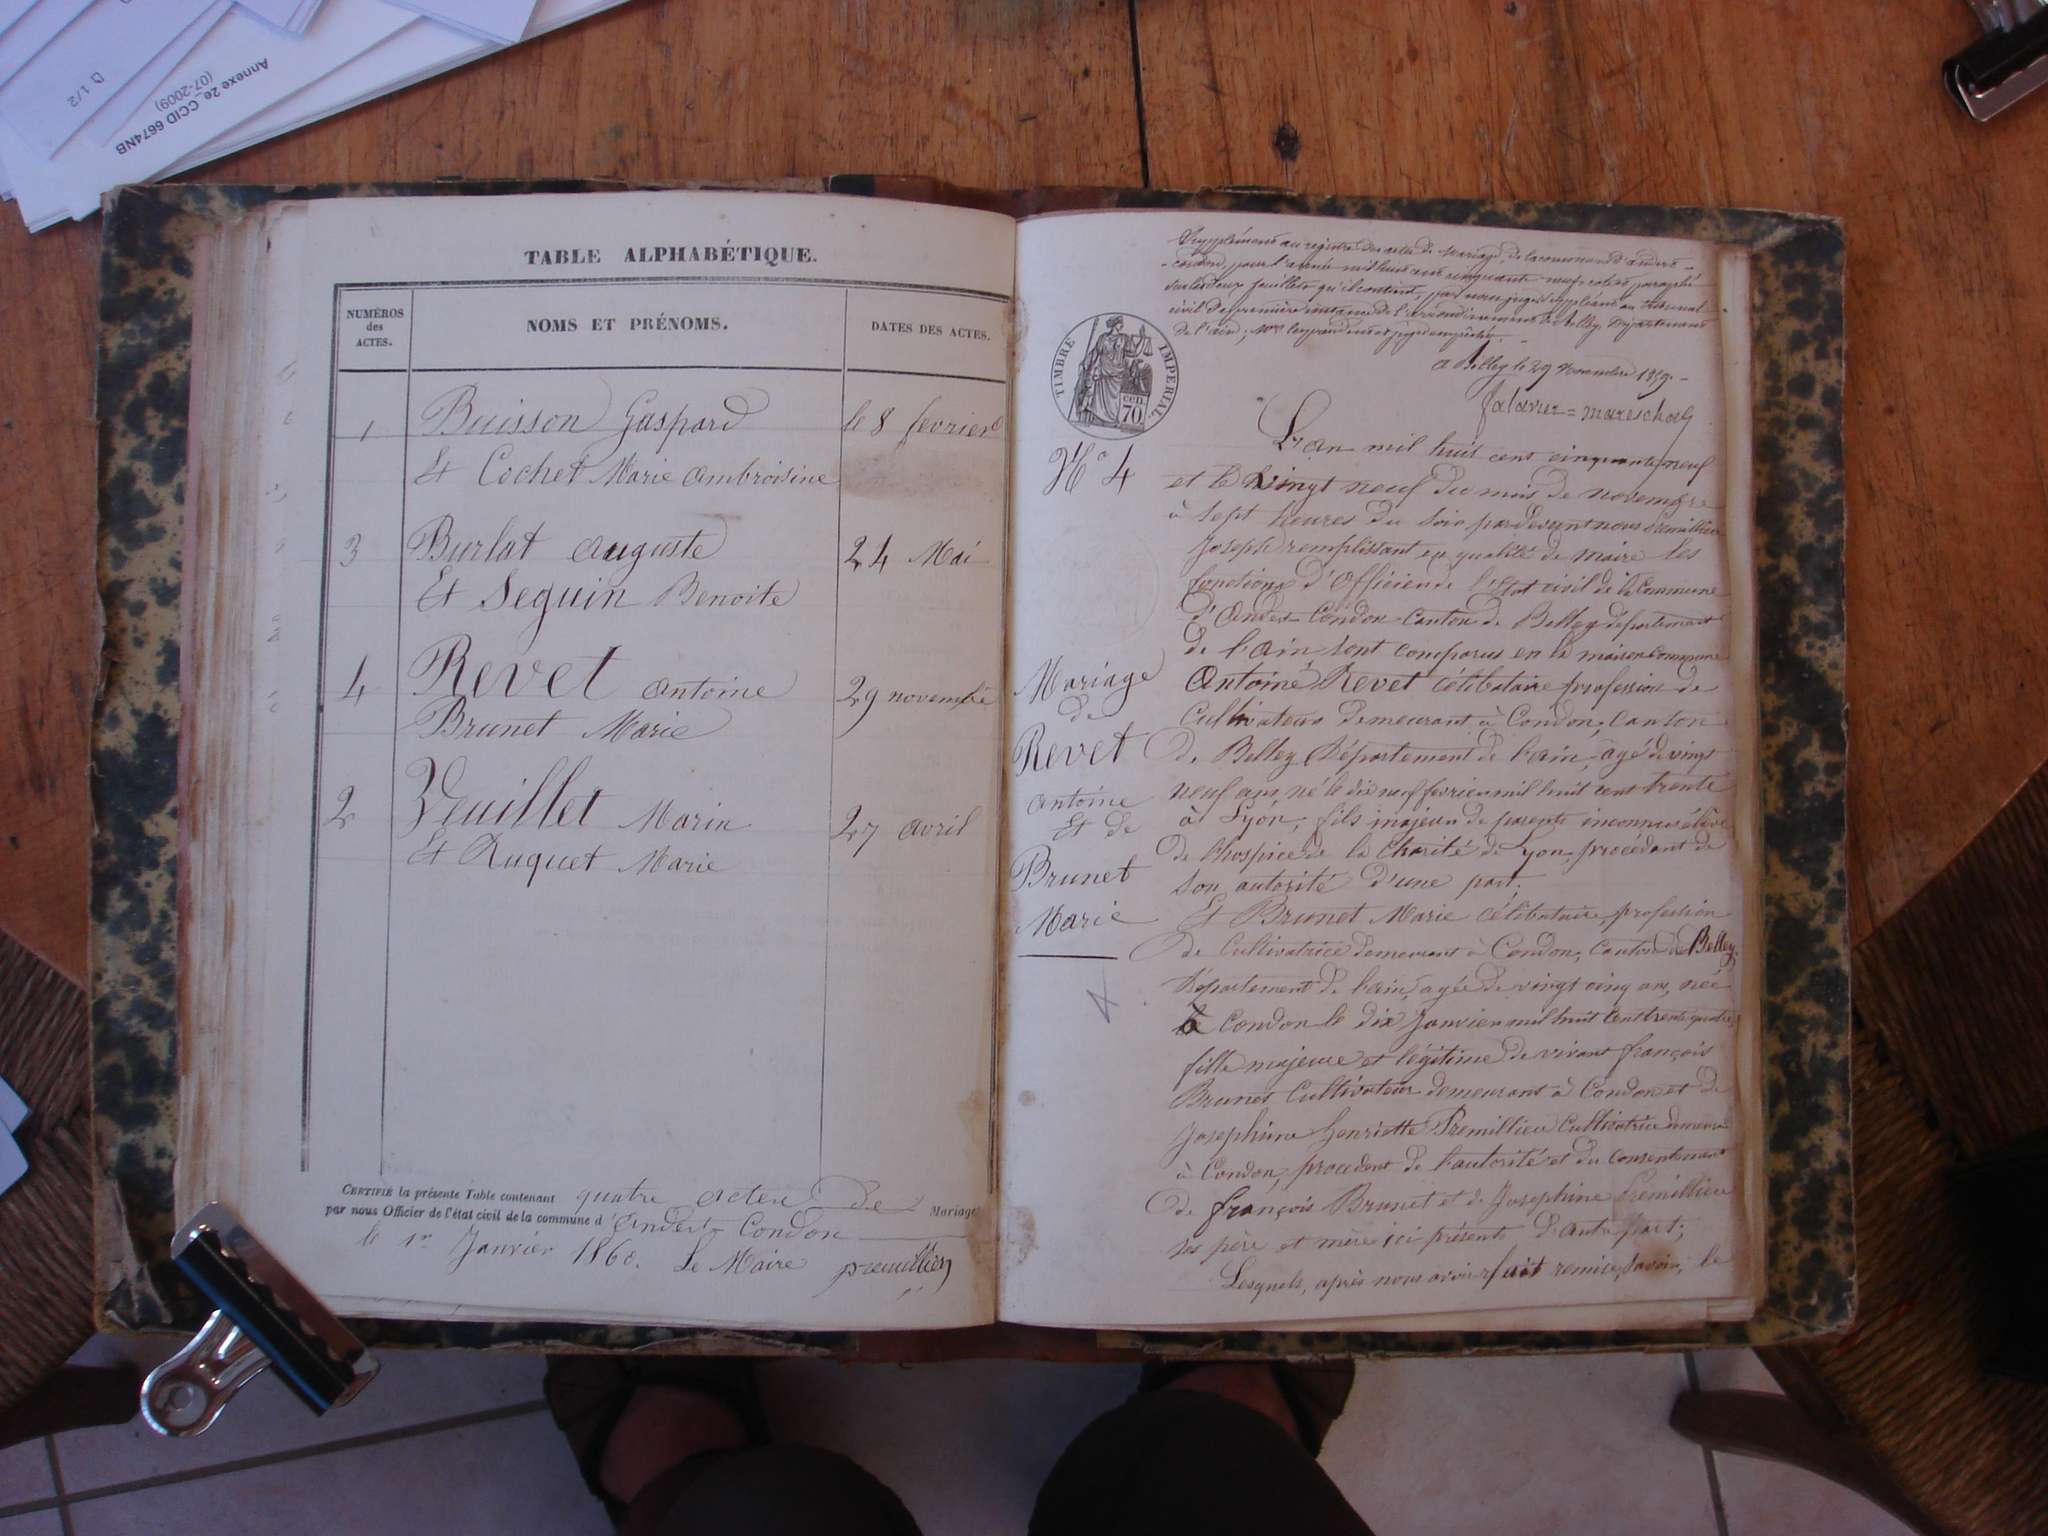 Annexe 2e_CCID 6674NB
(07-2009)
1/2
TABLE ALPHABÉTIQUE.
NUMÉROS des ACTES.
NOMS ET PRÉNOMS.
DATES DES ACTES.
1 Buisson Gaspard le 8 fevrier
Et Cochet Marie ambroisine
3 Burlat auguste 24 Mai
Et Seguin Benoite
4 Revet antoine 29 novembre
Brunet Marie
2 Veuillet Marin 27 avril
Et Ruquet Marie
CERTIFIÉ la présente Table contenant quatre actes de Mariage
par nous Officier de l'état civil de la commune d'andert-Condon
le 1er Janvier 1860. Le Maire premillieu
Supplément au registre des actes de Mariage, de la commune d'andert-
-condon, pour l'année mil huit cent cinquante-neuf coté et paraphé
sur les deux feuillets qu'il contient, par nous juge suppléant au tribunal
civil de première instance de l'arrondissement de Belley, Département
de l'ain,
a Belley le 29 novembre 1859.-
falavier=mareschal
TIMBRE IMPÉRIAL.
cen. 70
No 4
L'an mil huit cent cinquante neuf
et le vingt neuf du mois de novembre
à sept heures du soir pardevant nous Premillieu
Joseph remplissant en qualité de maire les
fonctions d'Officier de l'Etat civil de la Commune
d'Andert-Condon Canton de Belley département
de l'ain sont comparus en la maison commune
Mariage
de
Revet
antoine
Et de
Brunet
Marie
Antoine Revet célibataire profession de
Cultivateur demeurant à Condon, canton
de Belley Département de l'ain, agé de vingt
neuf ans, né le dix neuf fevrier mil huit cent trente
à Lyon, fils majeur de parents inconnus élève
de l'hospice de la Charité de Lyon, procédant de
son autorité d'une part.
Et Brunet Marie célibataire, profession
de Cultivatrice demeurant à Condon, canton de Belley,
Département de l'ain, agée de vingt cinq ans, née
à Condon le dix Janvier mil huit cent trente quatre,
fille majeure et légitime de vivant françois
Brunet Cultivateur demeurant à Condon et de
Josephine henriette Premillieu Cultivatrice demeurant
à Condon, procedent de l'autorité et du consentement
de françois Brunet et de Josephine Premillieu
ses père et mère ici présents, d'autre part;
Lesquels, après nous avoir fait remise, savoir; le